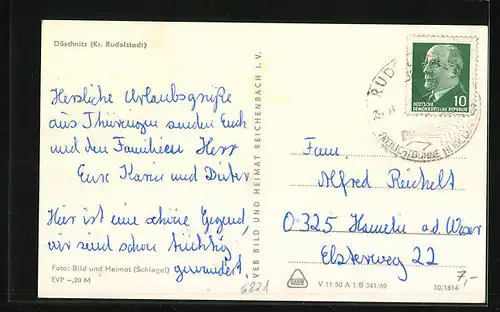 Döschnitz (Kr. Rudolstadt)
Herzliche Urlaubsgrüße
aus Thüringen senden Euch
und den Familien
Eure Karin und Dieter
Hier ist eine schöne Gegend,
wir sind schon tüchtig
gewandert.
Foto: Bild und Heimat (Schlegel)
EVP –,20 M
VEB BILD UND HEIMAT REICHENBACH I. V.
6821
DEUTSCHE
DEMOKRATISCHE REPUBLIK
10
Fam.
Alfred Reichelt
0325 Hameln a.d. Weser
Elsterweg 22
7,-
V 11 50 A 1/B 341/69
10/1814